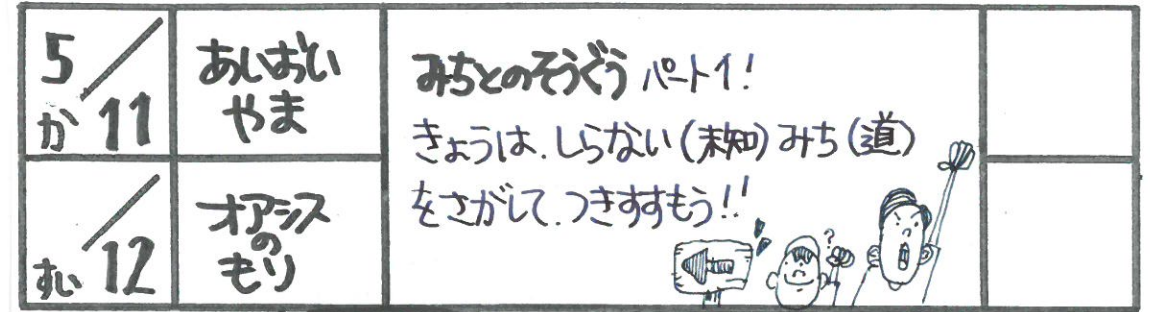 5/11
か
あいおい
やま
みちとのそうぐう パート1!
きょうは、しらない(未知)みち(道)
をさがして、つきすすもう!!
/12
すい
オアシス
の
もり
?